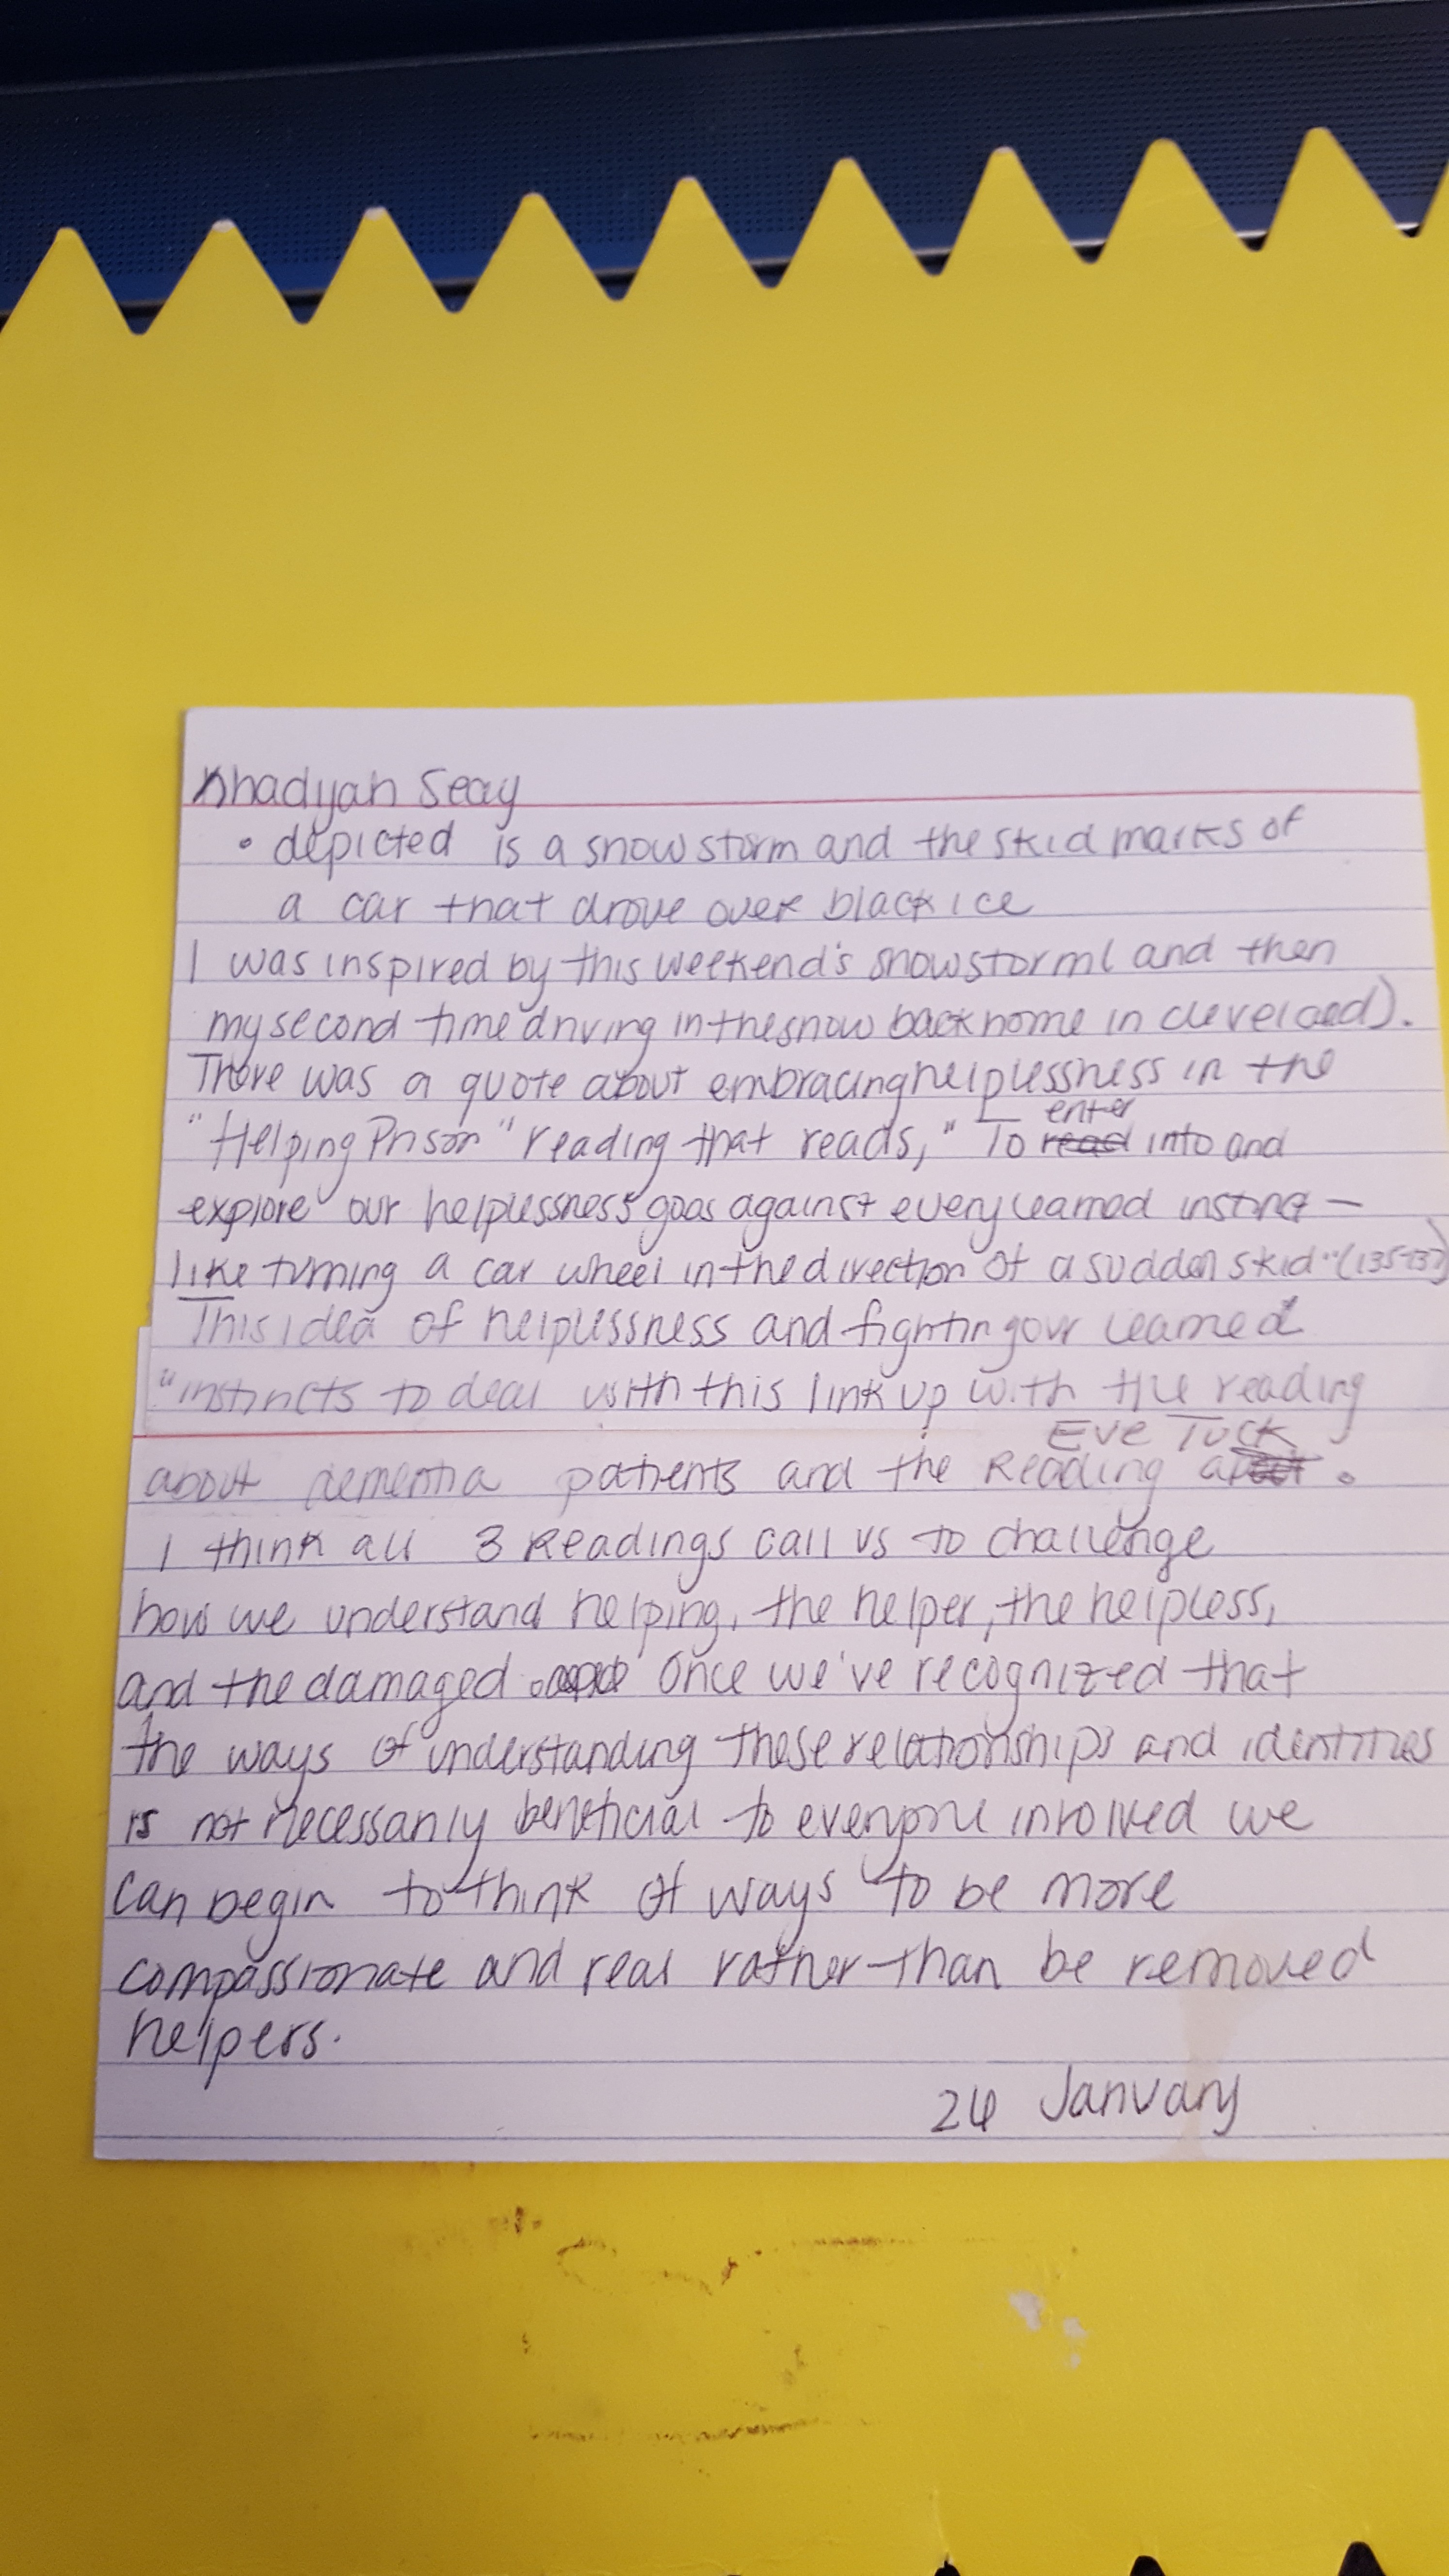 Khadijah Seay
• depicted is a snowstorm and the skid marks of
a car that drove over black ice
I was inspired by this weekend's snowstorm ( and then
my second time driving in the snow back home in cleveland).
There was a quote about embracing helplessness in the
"Helping Prison" reading that reads, "To enter into and
explore our helplessness goes against every learned instinct —
like turning a car wheel in the direction of a sudden skid" (135-137)
This idea of helplessness and fighting our learned
"instincts to deal with this link up with the reading
about dementia patients and the Eve Tuck Reading.
I think all 3 Readings call us to challenge
how we understand helping, the helper, the helpless,
and the damaged. Once we've recognized that
the ways of understanding these relationships and identities
is not necessarily beneficial to everyone involved we
can begin to think of ways to be more
compassionate and real rather than be removed
helpers.
26 January